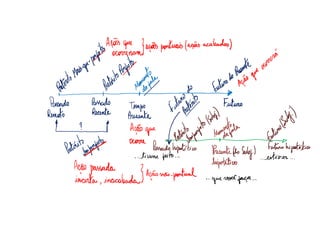 Ações que
ocorreram
ações pontuais (ações acabadas)
Pretérito Mais-que-perfeito
Pretérito Perfeito
Momento
da fala
Futuro do Presente
Ação que ocorrerá
Passado
Remoto
Passado
Recente
Tempo
Presente
Futuro do
Pretérito
Futuro
?
Ação que
ocorre
Pretérito
Imperfeito
Pretérito
Imperfeito (Subj)
Momento
da fala
Futuro (Subj)
Passado hipotético
...tivesse feito...
Presente (do Subj)
hipotético
...que você faça...
Futuro hipotético
...estiver...
Ação passada
incerta, inacabada
Ação não pontual